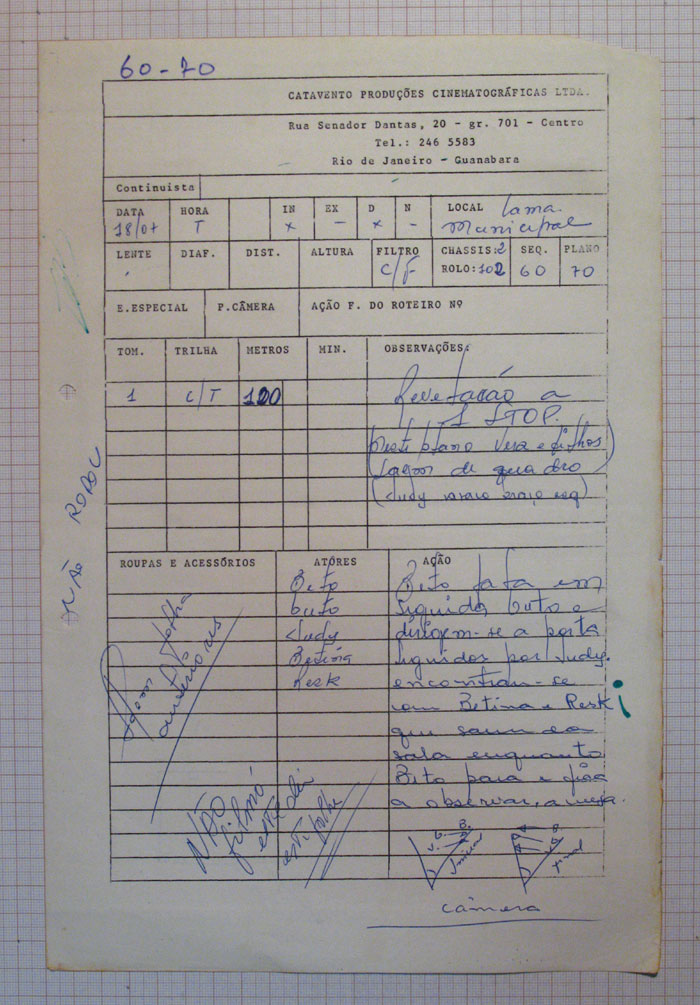 60-70
CATAVENTO PRODUÇÕES CINEMATOGRÁFICAS LTDA.
Rua Senador Dantas, 20 - gr. 701 - Centro
Tel.: 246 5583
Rio de Janeiro - Guanabara
Continuista
DATA HORA IN EX D N LOCAL
18/07 T x - x - municipal
LENTE DIAF. DIST. ALTURA FILTRO CHASSIS:2 SEQ. PLANO
C/F ROLO:102 60 70
E.ESPECIAL P.CÂMERA AÇÃO F. DO ROTEIRO Nº
TOM. TRILHA METROS MIN. OBSERVAÇÕES:
1 C/T 120 Revelação a
1 STOP.
(neste plano Vera e filhos
de quadro
(Judy
NÃO RODOU
ROUPAS E ACESSÓRIOS ATÔRES AÇÃO
Beto Beto fala em
Guto seguida Guto e
Judy dirigem-se a porta
Betina seguidos por Judy.
Resk encontram-se
com Betina e Reski
que saem da
sala enquanto
Beto para e fica
a observar, a mesa.
folha
anteriores
NÃO
filmó
este dia
esti folha
G. B.
J.
Inicial
final
câmera